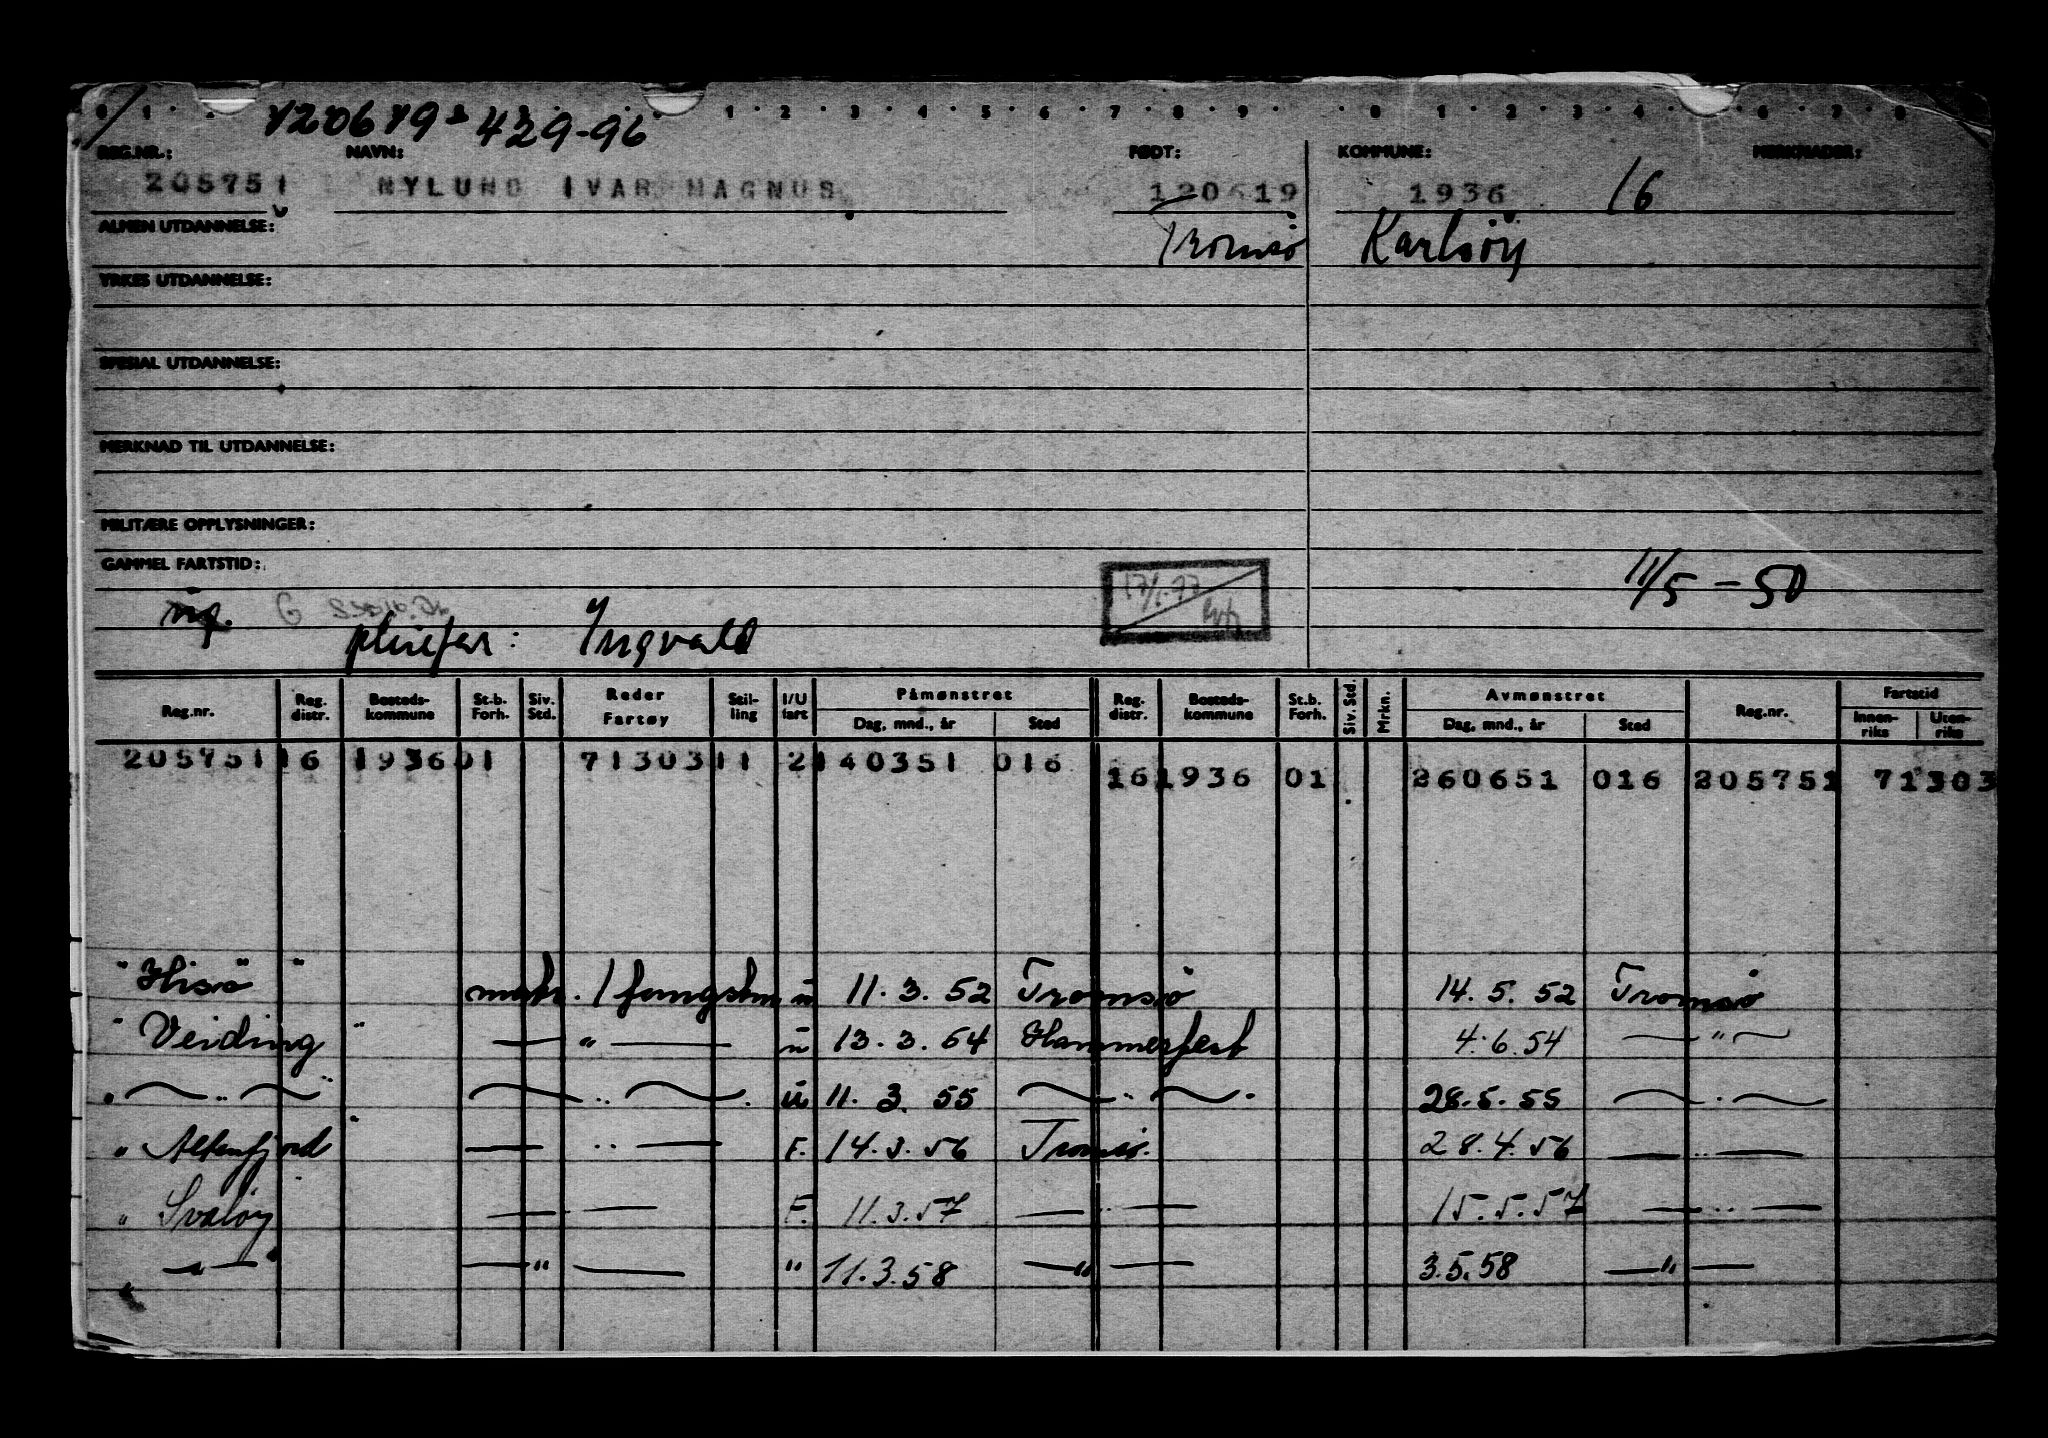 120619 429-96
REG.NR.: NAVN: FØDT: KOMMUNE: MERKNADER:
205751 NYLUND IVAR MAGNUS 120619 1936 16
ALMEN UTDANNELSE: Tromsø Karlsøy
YRKES UTDANNELSE:
SPESIAL UTDANNELSE:
MERKNAD TIL UTDANNELSE:
MILITÆRE OPPLYSNINGER:
GAMMEL FARTSTID:
11/5 - 50
17/1-77
: Yngvald
Reg.nr. Reg. distr. Bosteds-kommune St.b. Forh. Siv. Std. Reder Fartøy Stil-ling I/U fart Påmønstret Dag, mnd., år Sted Reg. distr. Bosteds-kommune St.b. Forh. Siv. Std. Mrkn. Avmønstret Dag, mnd., år Sted Reg.nr. Fartstid Innen-riks Uten-riks
205751 16 1936 01 71303 11 2 140351 016 16 1936 01 260651 016 205751 71303
"Hisø" " matr. / fangstm u 11. 3. 52 Tromsø 14. 5. 52 Tromsø
" Veiding " — " — u 13. 3. 54 Hammerfest 4. 6. 54 — " —
" — " — " — " — u 11. 3. 55 — " — 28. 5. 55 — " —
" Altenfjord " — " — F. 14. 3. 56 Tromsø. 28. 4. 56 — " —
" Svaløy " — " — F. 11. 3. 57 — " — 15. 5. 57 — " —
" — " — " — " — " 11. 3. 58 — " — 3. 5. 58 — " —